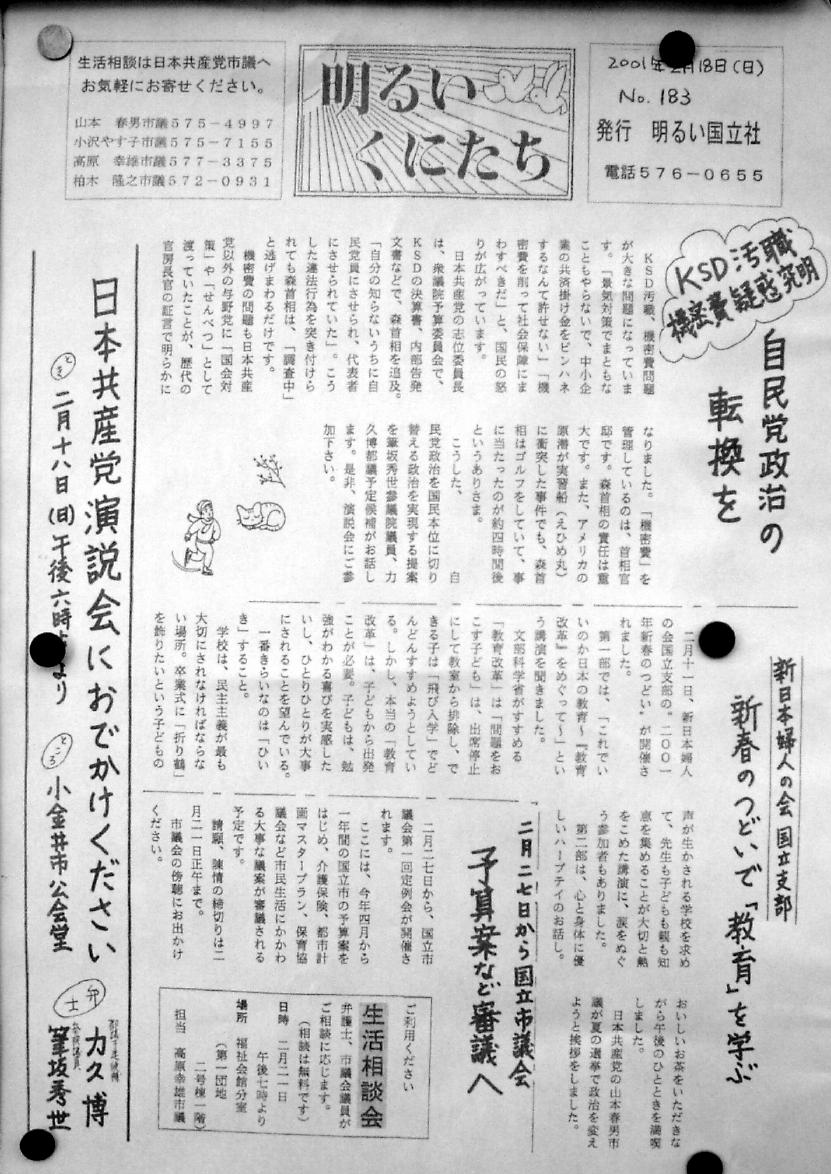 生活相談は日本共産党市議へ
お気軽にお寄せください。
山本 春男市議575-4997
小沢やす子市議575-7155
高原 幸雄市議577-3375
柏木 隆之市議572-0931
明るい
くにたち
2001年2月18日(日)
No. 183
発行 明るい国立社
電話576-0655
KSD汚職
機密費疑惑究明
自民党政治の
転換を
KSD汚職、機密費問題
が大きな問題になっていま
す。「景気対策でまともな
こともやらないで、中小企
業の共済掛け金をピンハネ
するなんて許せない」「機
密費を削って社会保障にま
わすべきだ」と、国民の怒
りが広がっています。
日本共産党の志位委員長
は、衆議院予算委員会で、
KSDの決算書、内部告発
文書などで、森首相を追及。
「自分の知らないうちに自
民党員にさせられ、代表者
にさせられていた」。こう
した違法行為を突き付けら
れても森首相は、「調査中」
と逃げまわるだけです。
機密費の問題も日本共産
党以外の与野党に「国会対
策」や「せんべつ」として
渡っていたことが、歴代の
官房長官の証言で明らかに
なりました。「機密費」を
管理しているのは、首相官
邸です。森首相の責任は重
大です。また、アメリカの
原潜が実習船(えひめ丸)
に衝突した事件でも、森首
相はゴルフをしていて、事
に当たったのが約四時間後
というありさま。
こうした、 自
民党政治を国民本位に切り
替える政治を実現する提案
を筆坂秀世参議院議員、力
久博都議予定候補がお話し
ます。是非、演説会にご参
加下さい。
新日本婦人の会 国立支部
新春のつどいで「教育」を学ぶ
二月十一日、新日本婦人
の会国立支部の。二〇〇一
年新春のつどい」が開催さ
れました。
第一部では、「これでい
いのか日本の教育~『教育
改革』をめぐって~」とい
う講演を聞きました。
文部科学省がすすめる
「教育改革」は「問題をお
こす子ども」は、出席停止
にして教室から排除し、で
きる子は「飛び入学」でど
んどんすすめようとしてい
る。しかし、本当の「教育
改革」は、子どもから出発
ことが必要。子どもは、勉
強がわかる喜びを実感した
いし、ひとりひとりが大事
にされることを望んでいる。
一番きらいなのは「ひい
き」すること。
学校は、民主主義が最も
大切にされなければならな
い場所。卒業式に「折り鶴」
を飾りたいという子どもの
声が生かされる学校を求め
て、先生も子どもも親も知
恵を集めることが大切と熱
をこめた講演に、涙をぬぐ
う参加者もありました。
第二部は、心と身体に優
しいハーブテイのお話し。
おいしいお茶をいただきな
がら午後のひとときを満喫
しました。
日本共産党の山本春男市
議が夏の選挙で政治を変え
ようと挨拶をしました。
二月二七日から国立市議会
予算案など審議へ
二月二七日から、国立市
議会第一回定例会が開催さ
れます。
ここには、今年四月から
一年間の国立市の予算案を
はじめ、介護保険、都市計
画マスタープラン、保育協
議会など市民生活にかかわ
る大事な議案が審議される
予定です。
請願、陳情の締切りは二
月二一日正午まで。
市議会の傍聴にお出かけ
ください。
ご利用ください
生活相談会
弁護士、市議会議員が
ご相談に応じます。
(相談は無料です)
日時 二月二一日
午後七時より
場所 福祉会館分室
(第一団地
二号棟一階)
担当 高原幸雄市議
日本共産党演説会におでかけください
とき 二月十八日(日)午後六時より
ところ 小金井市公会堂
弁士
都議予定候補 力久博
参院議員 筆坂秀世